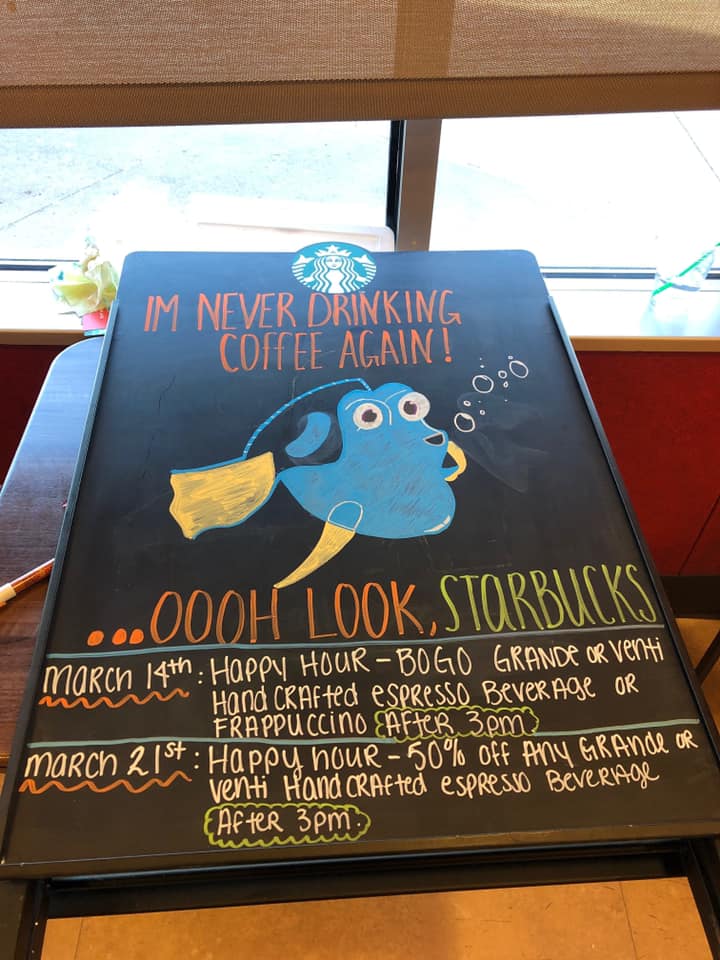 IM NEVER DRINKING
COFFEE AGAIN!
...OOOH LOOK, STARBUCKS
MARCH 14th: HAPPY HOUR - BOGO GRANDE OR VENTI
HAND CRAFTED ESPRESSO BEVERAGE OR
FRAPPUCCINO AFTER 3pm
MARCH 21st: HAPPY HOUR - 50% off ANY GRANDE OR
VENTI HAND CRAFTED ESPRESSO BEVERAGE
AFTER 3pm.